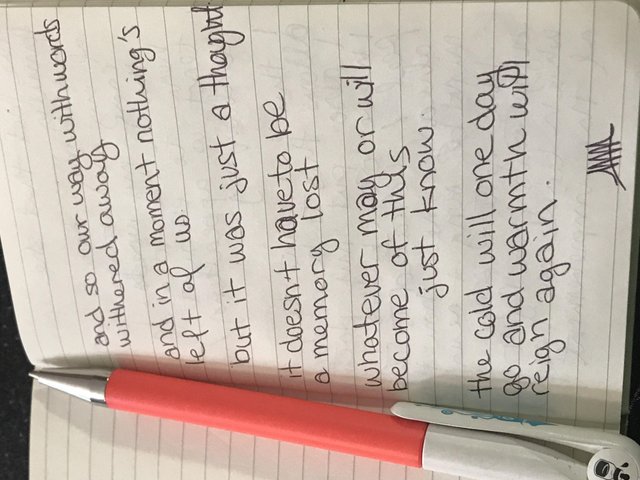 and so our way with words
withered away
and in a moment nothing's
left of us.
but it was just a thought
it doesn't have to be
a memory lost
whatever may or will
become of this
just know.
the cold will one day
go and warmth will
reign again.